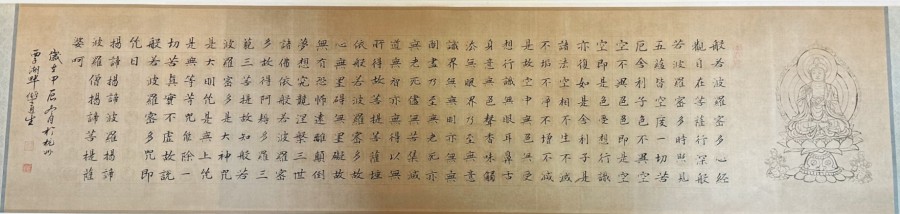 般若波羅蜜多心經
觀自在菩薩行深般
若波羅蜜多時照見
五蘊皆空度一切苦
厄舍利子色不異空
空不異色色即是空
空即是色受想行識
亦復如是舍利子是
諸法空相不生不滅
不垢不淨不增不減
是故空中無色無受
想行識無眼耳鼻舌
身意無色聲香味觸
法無眼界乃至無意
識界無無明亦無無
明盡乃至無老死亦
無老死盡無苦集滅
道無智亦無得以無
所得故菩提薩埵
依般若波羅蜜多故
心無罣礙無罣礙故
無有恐怖遠離顛倒
夢想究竟涅槃三世
諸佛依般若波羅蜜
多故得阿耨多羅三
藐三菩提故知般若
波羅蜜多是大神咒
是大明咒是無上咒
是無等等咒能除一
切苦真實不虛故說
般若波羅蜜多咒即
咒曰
揭諦揭諦波羅揭諦
波羅僧揭諦菩提薩
婆訶
歲在甲辰月於杭州